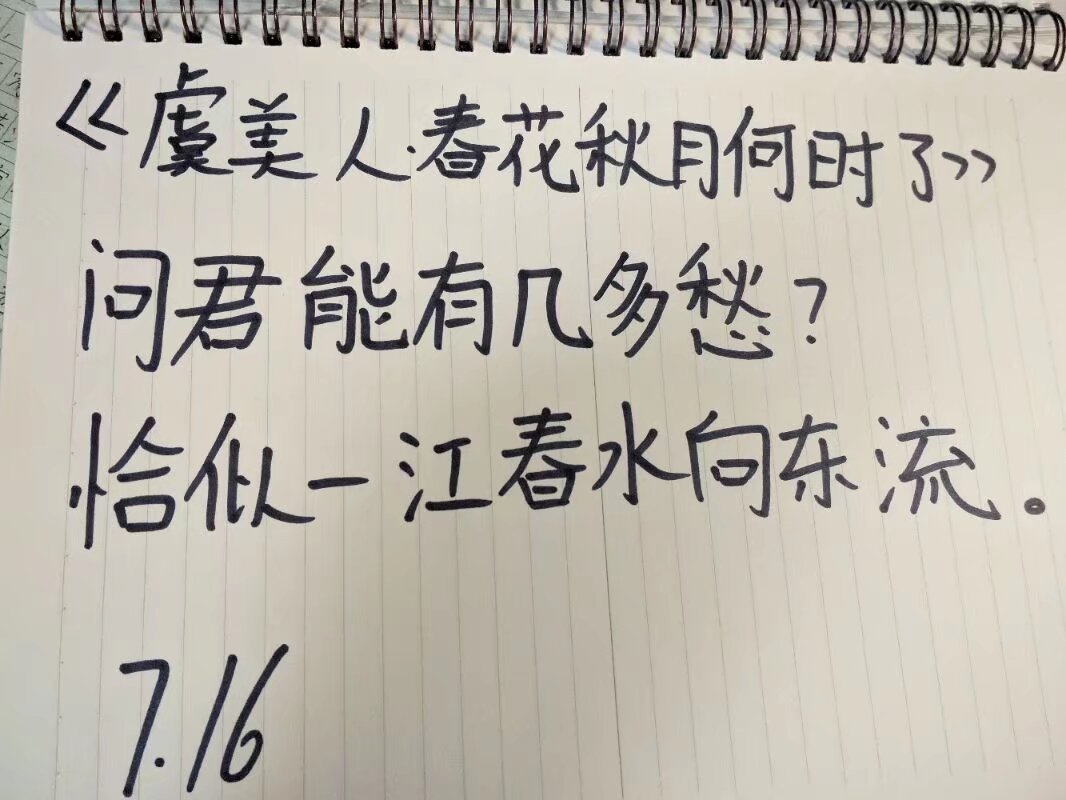 《虞美人·春花秋月何时了》
问君能有几多愁?
恰似一江春水向东流。
7.16